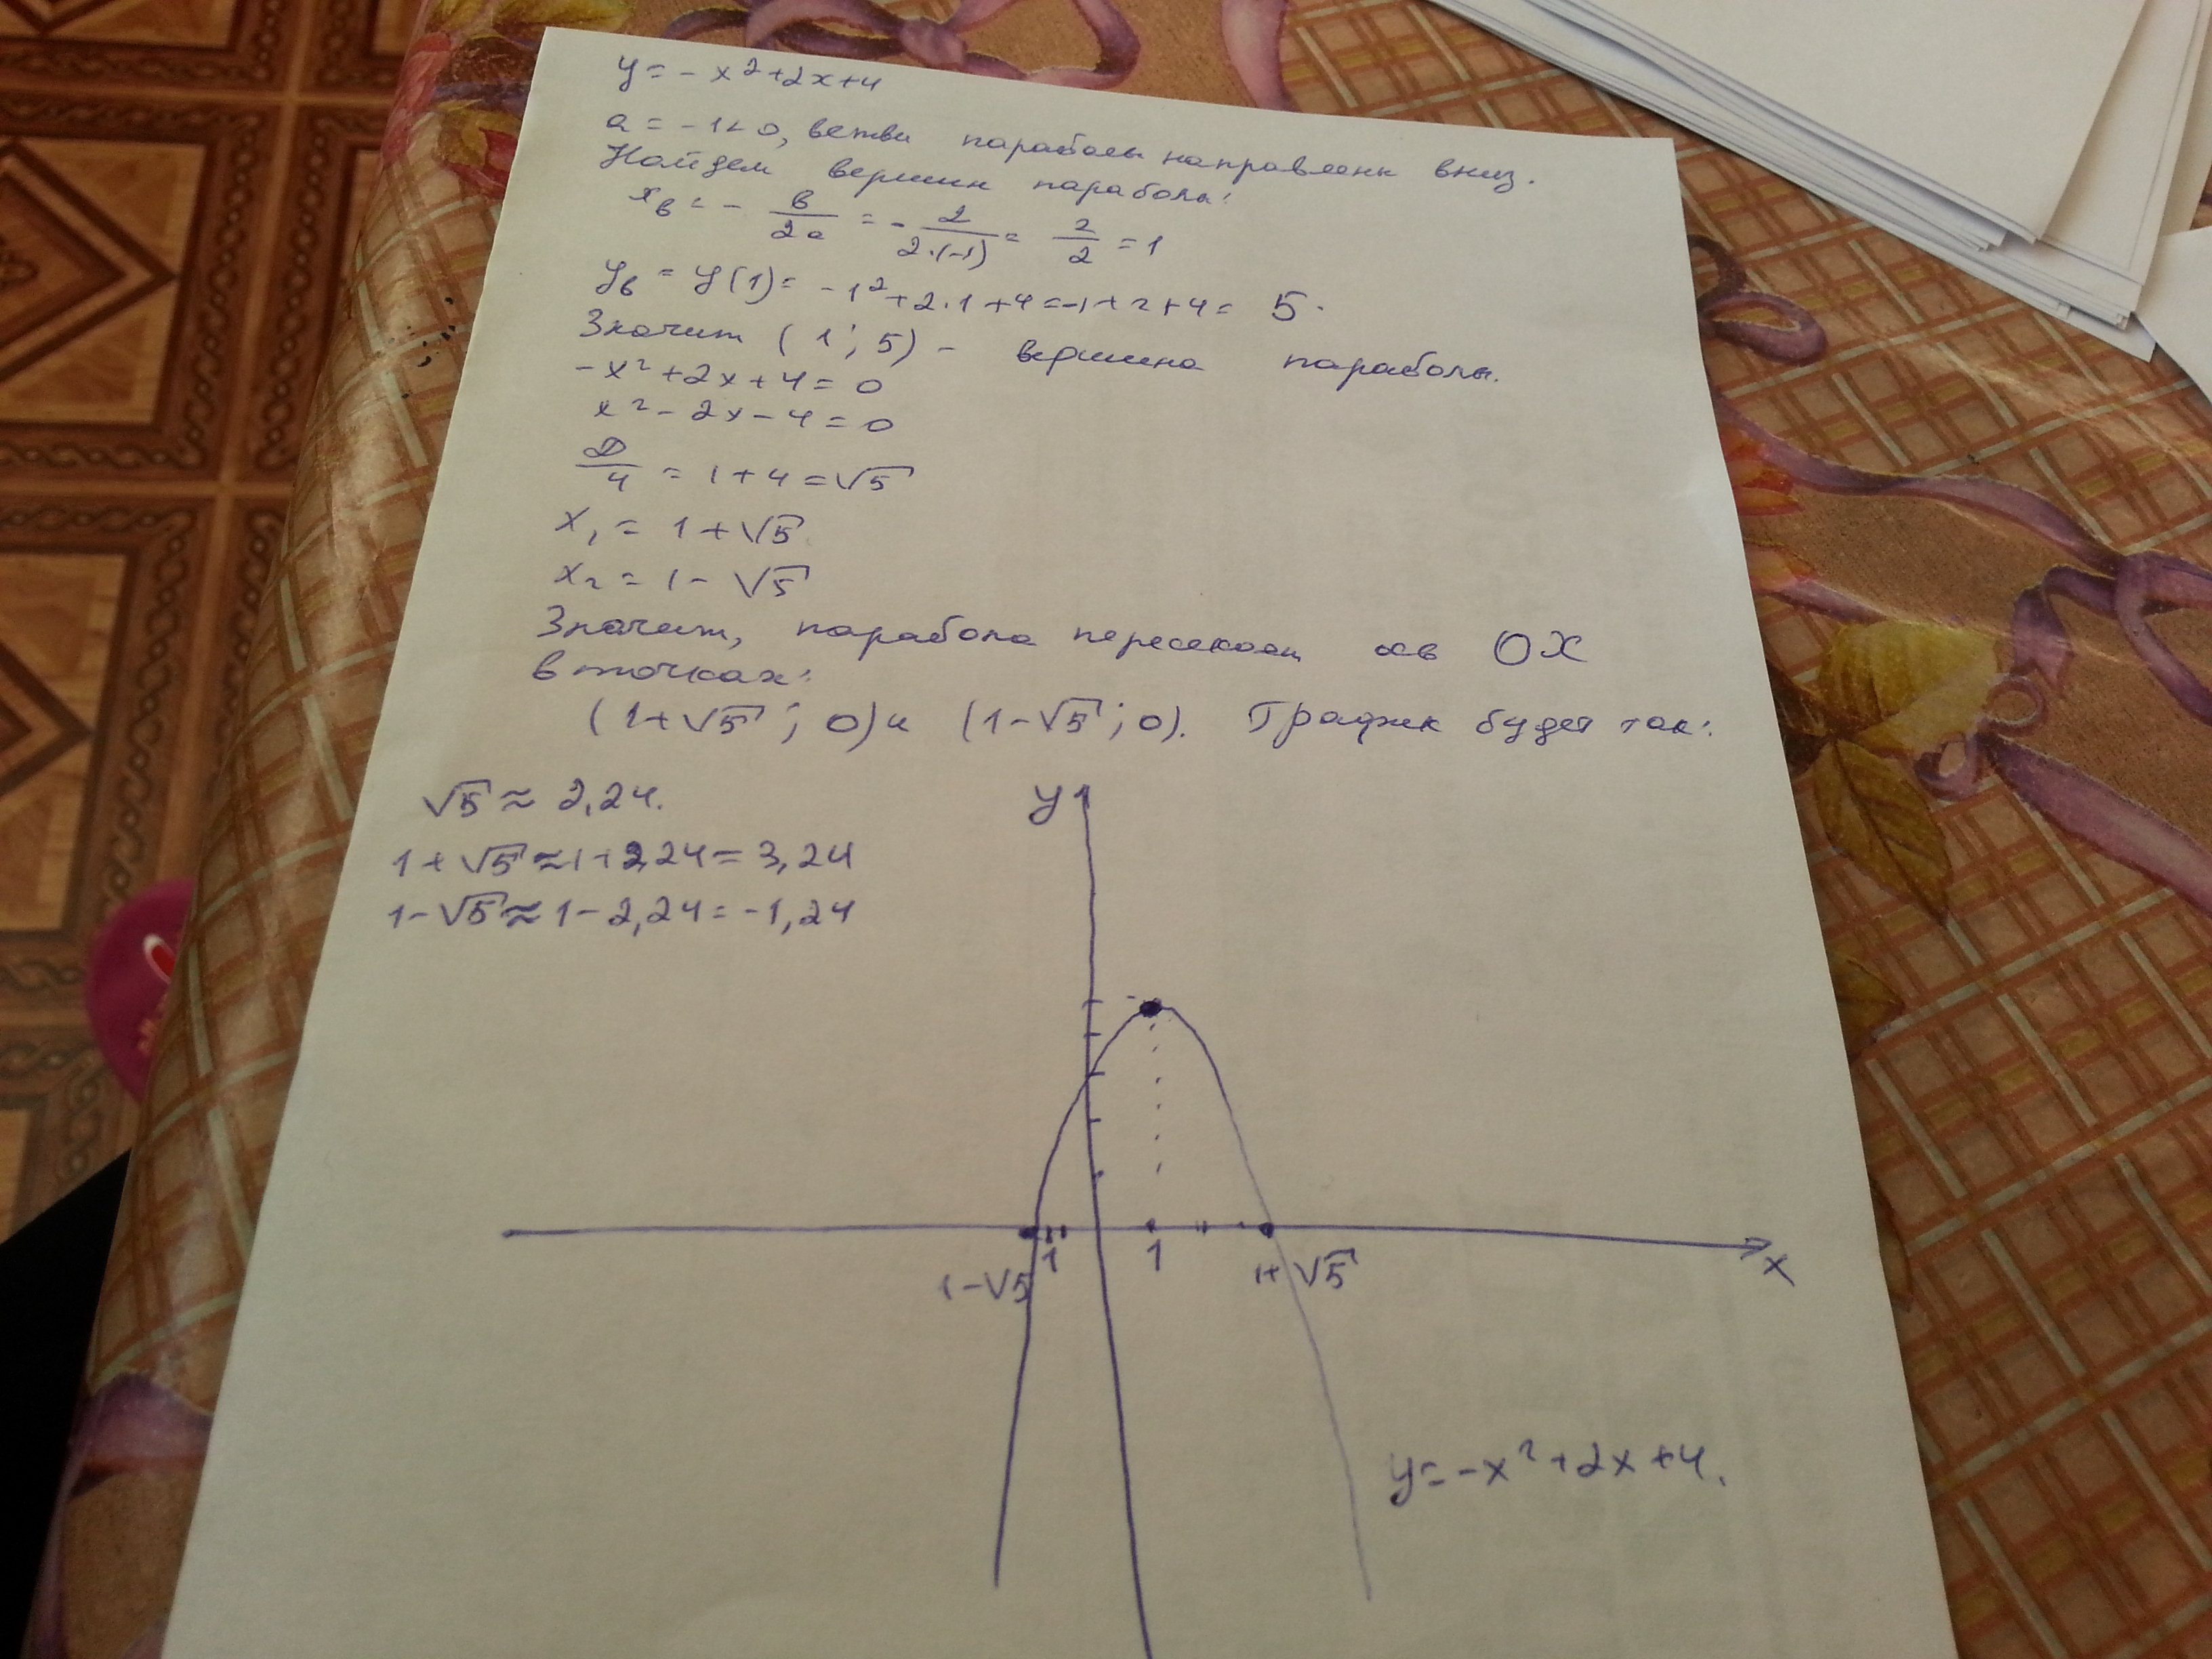 y = - x² + 2x + 4
a = -1 < 0, ветви параболы направлены вниз.
Найдем вершин параболы:
xв = - в/2a = - 2/2·(-1) = 2/2 = 1
yв = y(1) = -1² + 2·1 + 4 = -1 + 2 + 4 = 5.
Значит (1; 5) - вершина параболы.
-x² + 2x + 4 = 0
x² - 2x - 4 = 0
D/4 = 1 + 4 = √5
x₁ = 1 + √5
x₂ = 1 - √5
Значит, парабола пересекает ось OX
в точках:
(1+√5; 0) и (1-√5; 0). График будет так:
√5 ≈ 2,24.
1 + √5 ≈ 1 + 2,24 = 3,24
1 - √5 ≈ 1 - 2,24 = -1,24
y
1-√5 1 1 1+√5 x
y = -x² + 2x + 4.